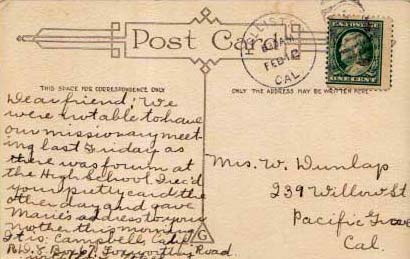 Post Card
HOLLISTER
FEB 12
CAL
U.S. POSTAGE
ONE CENT
THIS SPACE FOR CORRESPONDENCE ONLY
ONLY THE ADDRESS MAY BE WRITTEN HERE
Dear friend: We
were not able to have
our missionary meet-
ing last Friday as
there was forum at
the High School. Irec'd
your pretty card the
other day and gave
Marie's address to your
mother this morning
It is: Campbell, Calif.
R.D. Box 67, Foxworthy Road.
Mrs. W. Dunlap
239 Willow St
Pacific Grove
Cal.
G